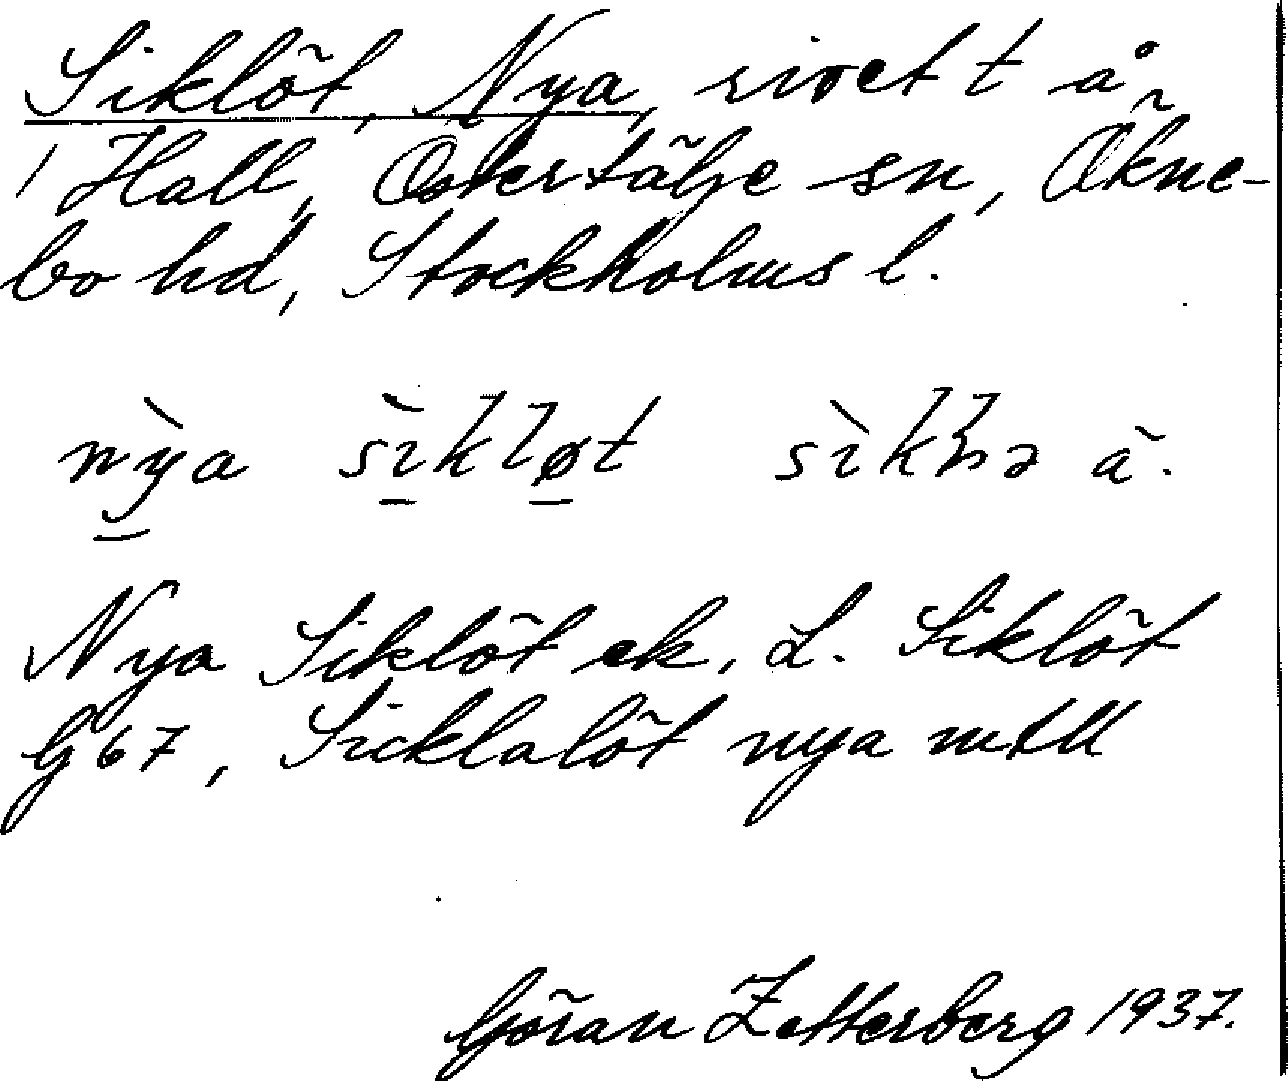 Siklöt, Nya, rivet t å
/ Hall, Östertälje sn, Ökne-
bo hd, Stockholms l.
nỳa sìkløt sìklna à.
Nya Siklöt ek. L. Siklöt
G 67, Sicklalöt nya mtll
Göran Zetterberg 1937.